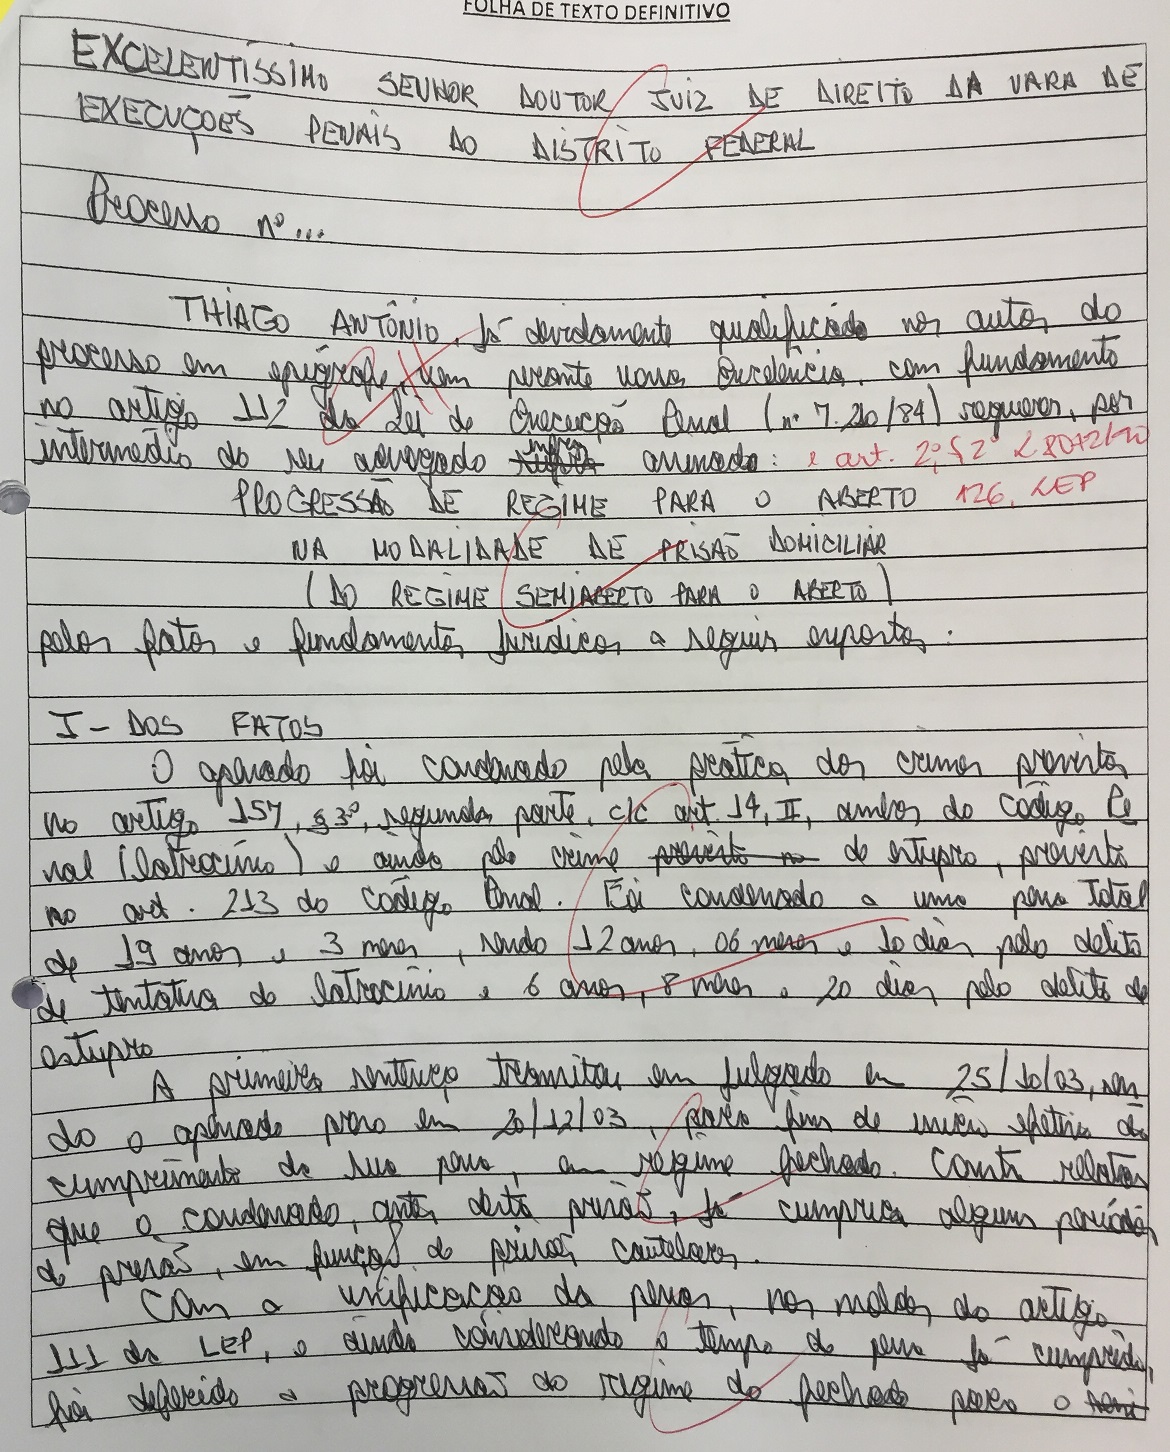 FOLHA DE TEXTO DEFINITIVO
EXCELENTÍSSIMO SENHOR DOUTOR JUIZ DE DIREITO DA VARA DE
EXECUÇÕES PENAIS DO DISTRITO FEDERAL
Processo nº...
THIAGO ANTÔNIO, já devidamente qualificado nos autos do
processo em epígrafe, vem perante vossa Excelência, com fundamento
no artigo 112 da Lei de Execução Penal (nº 7.210/84) requerer, por
intermédio do seu advogado infra assinado: e art. 2º, § 2º L 8072/90
PROGRESSÃO DE REGIME PARA O ABERTO 126, LEP
NA MODALIDADE DE PRISÃO DOMICILIAR
(DO REGIME SEMIABERTO PARA O ABERTO)
pelos fatos e fundamentos jurídicos a seguir expostos:
I - DOS FATOS
O apenado foi condenado pela prática dos crimes previstos
no artigo 157, § 3º, segunda parte, c/c art. 14, II, ambos do Código Pe
nal (latrocínio) e ainda pelo crime previsto no de estupro, previsto
no art. 213 do Código Penal. Foi condenado a uma pena total
de 19 anos e 3 meses, sendo 12 anos, 06 meses e 10 dias pelo delito
de tentativa de latrocínio e 6 anos, 8 meses e 20 dias pelo delito de
estupro
A primeira sentença transitou em julgado em 25/10/03, sen
do o apenado preso em 20/12/03, para fins de início efetivo do
cumprimento de sua pena, em regime fechado. Consta relatos
que o condenado, antes desta prisão, já cumprira alguns períodos
de prisão, em função de prisões cautelares.
Com a unificação das penas, nos moldes do artigo
111 da LEP, e ainda considerando o tempo de pena já cumprido,
foi deferido a progressão do regime do fechado para o semi